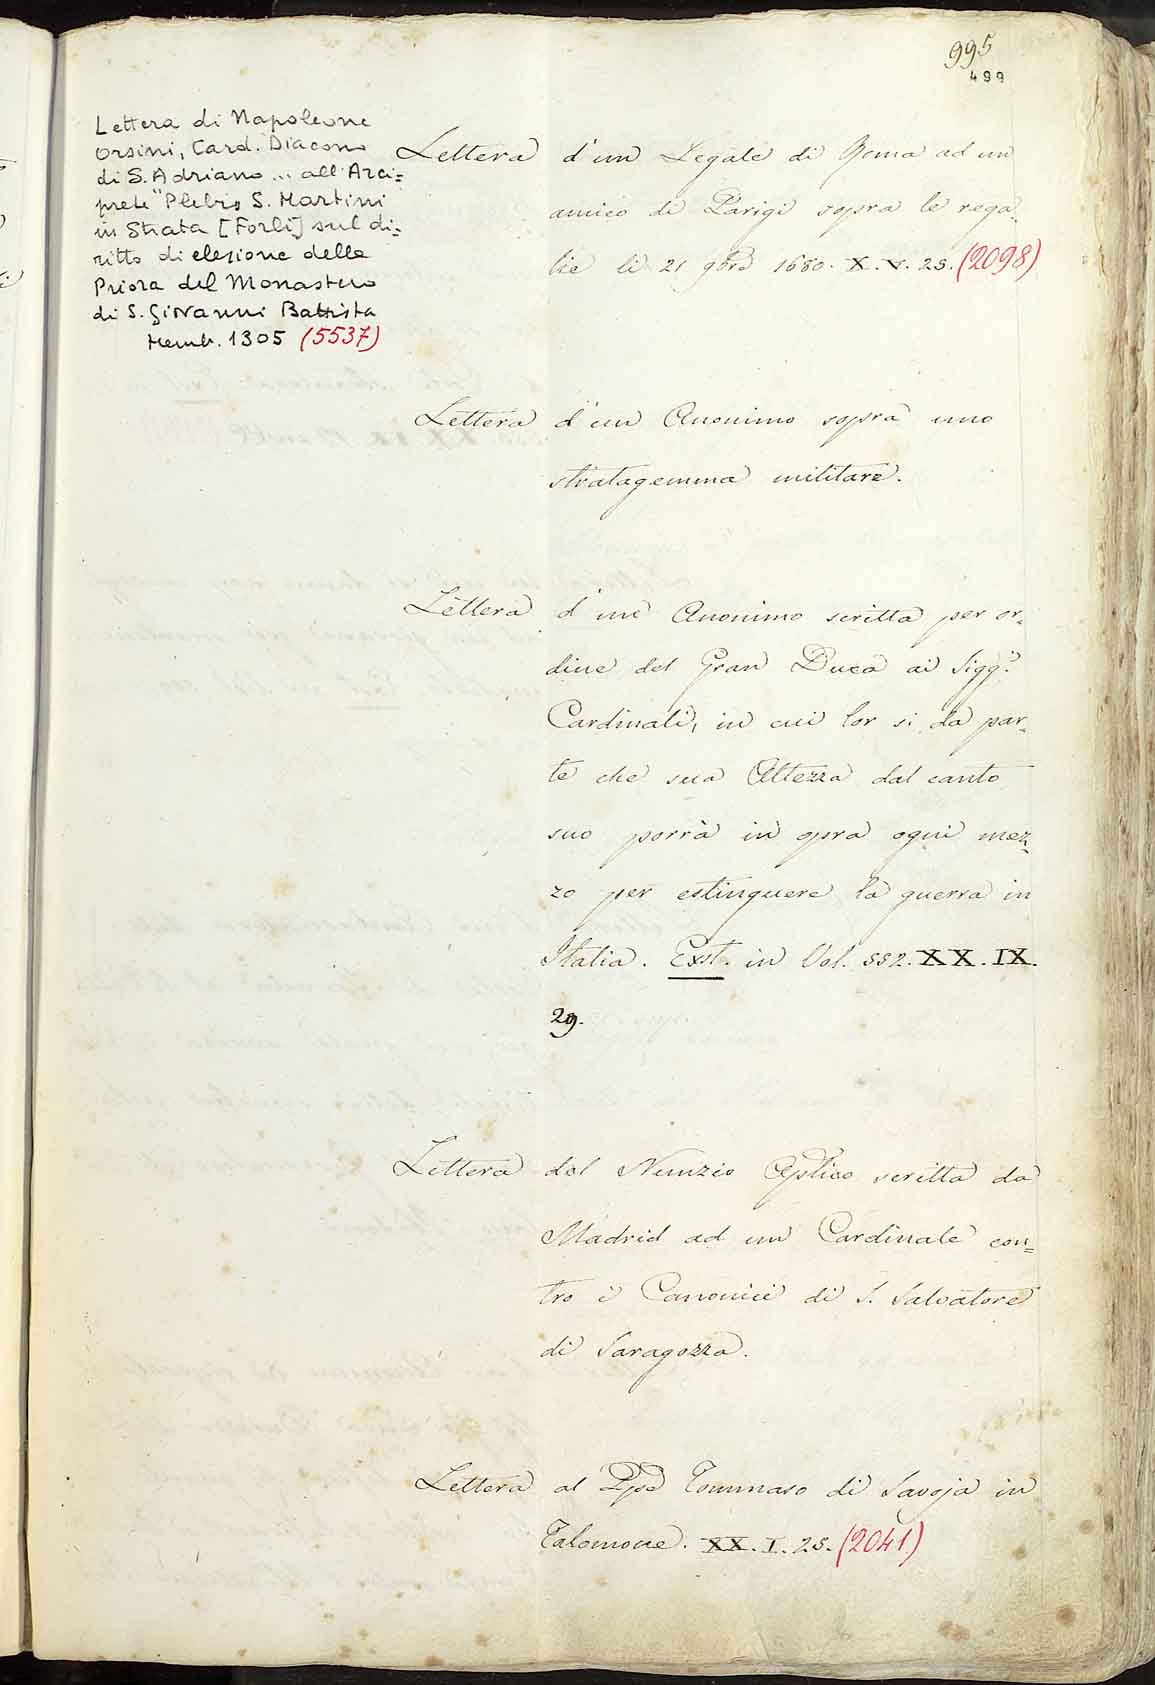 995
499
Lettera di Napoleone
Orsini, Card. Diacono
di S. Adriano... all'Arci=
prete "Plebis S. Martini
in Strata [Forlì] sul di=
ritto di elezione della
Priora del Monastero
di S. Giovanni Battista
Memb. 1305 (5537)
Lettera d'un Legale di Roma ad un
amico di Parigi sopra le rega-
lie li 21 9bre 1680. X. V. 25. (2098)
Lettera d'un Anonimo sopra uno
stratagemma militare.
Lettera d'un Anonimo scritta per or-
dine del Gran Duca ai Sigg.ri
Cardinali, in cui lor si da par-
te che sua Altezza dal canto
suo porrà in opra ogni mez-
zo per estinguere la guerra in
Italia. Exst. in Vol. 552. XX. IX.
29.
Lettera del Nunzio Aplico scritta da
Madrid ad un Cardinale con=
tro i Canonici di S. Salvatore
di Saragozza.
Lettera al Ppe Tommaso di Savoja in
Talomone. XX. I. 25. (2041)